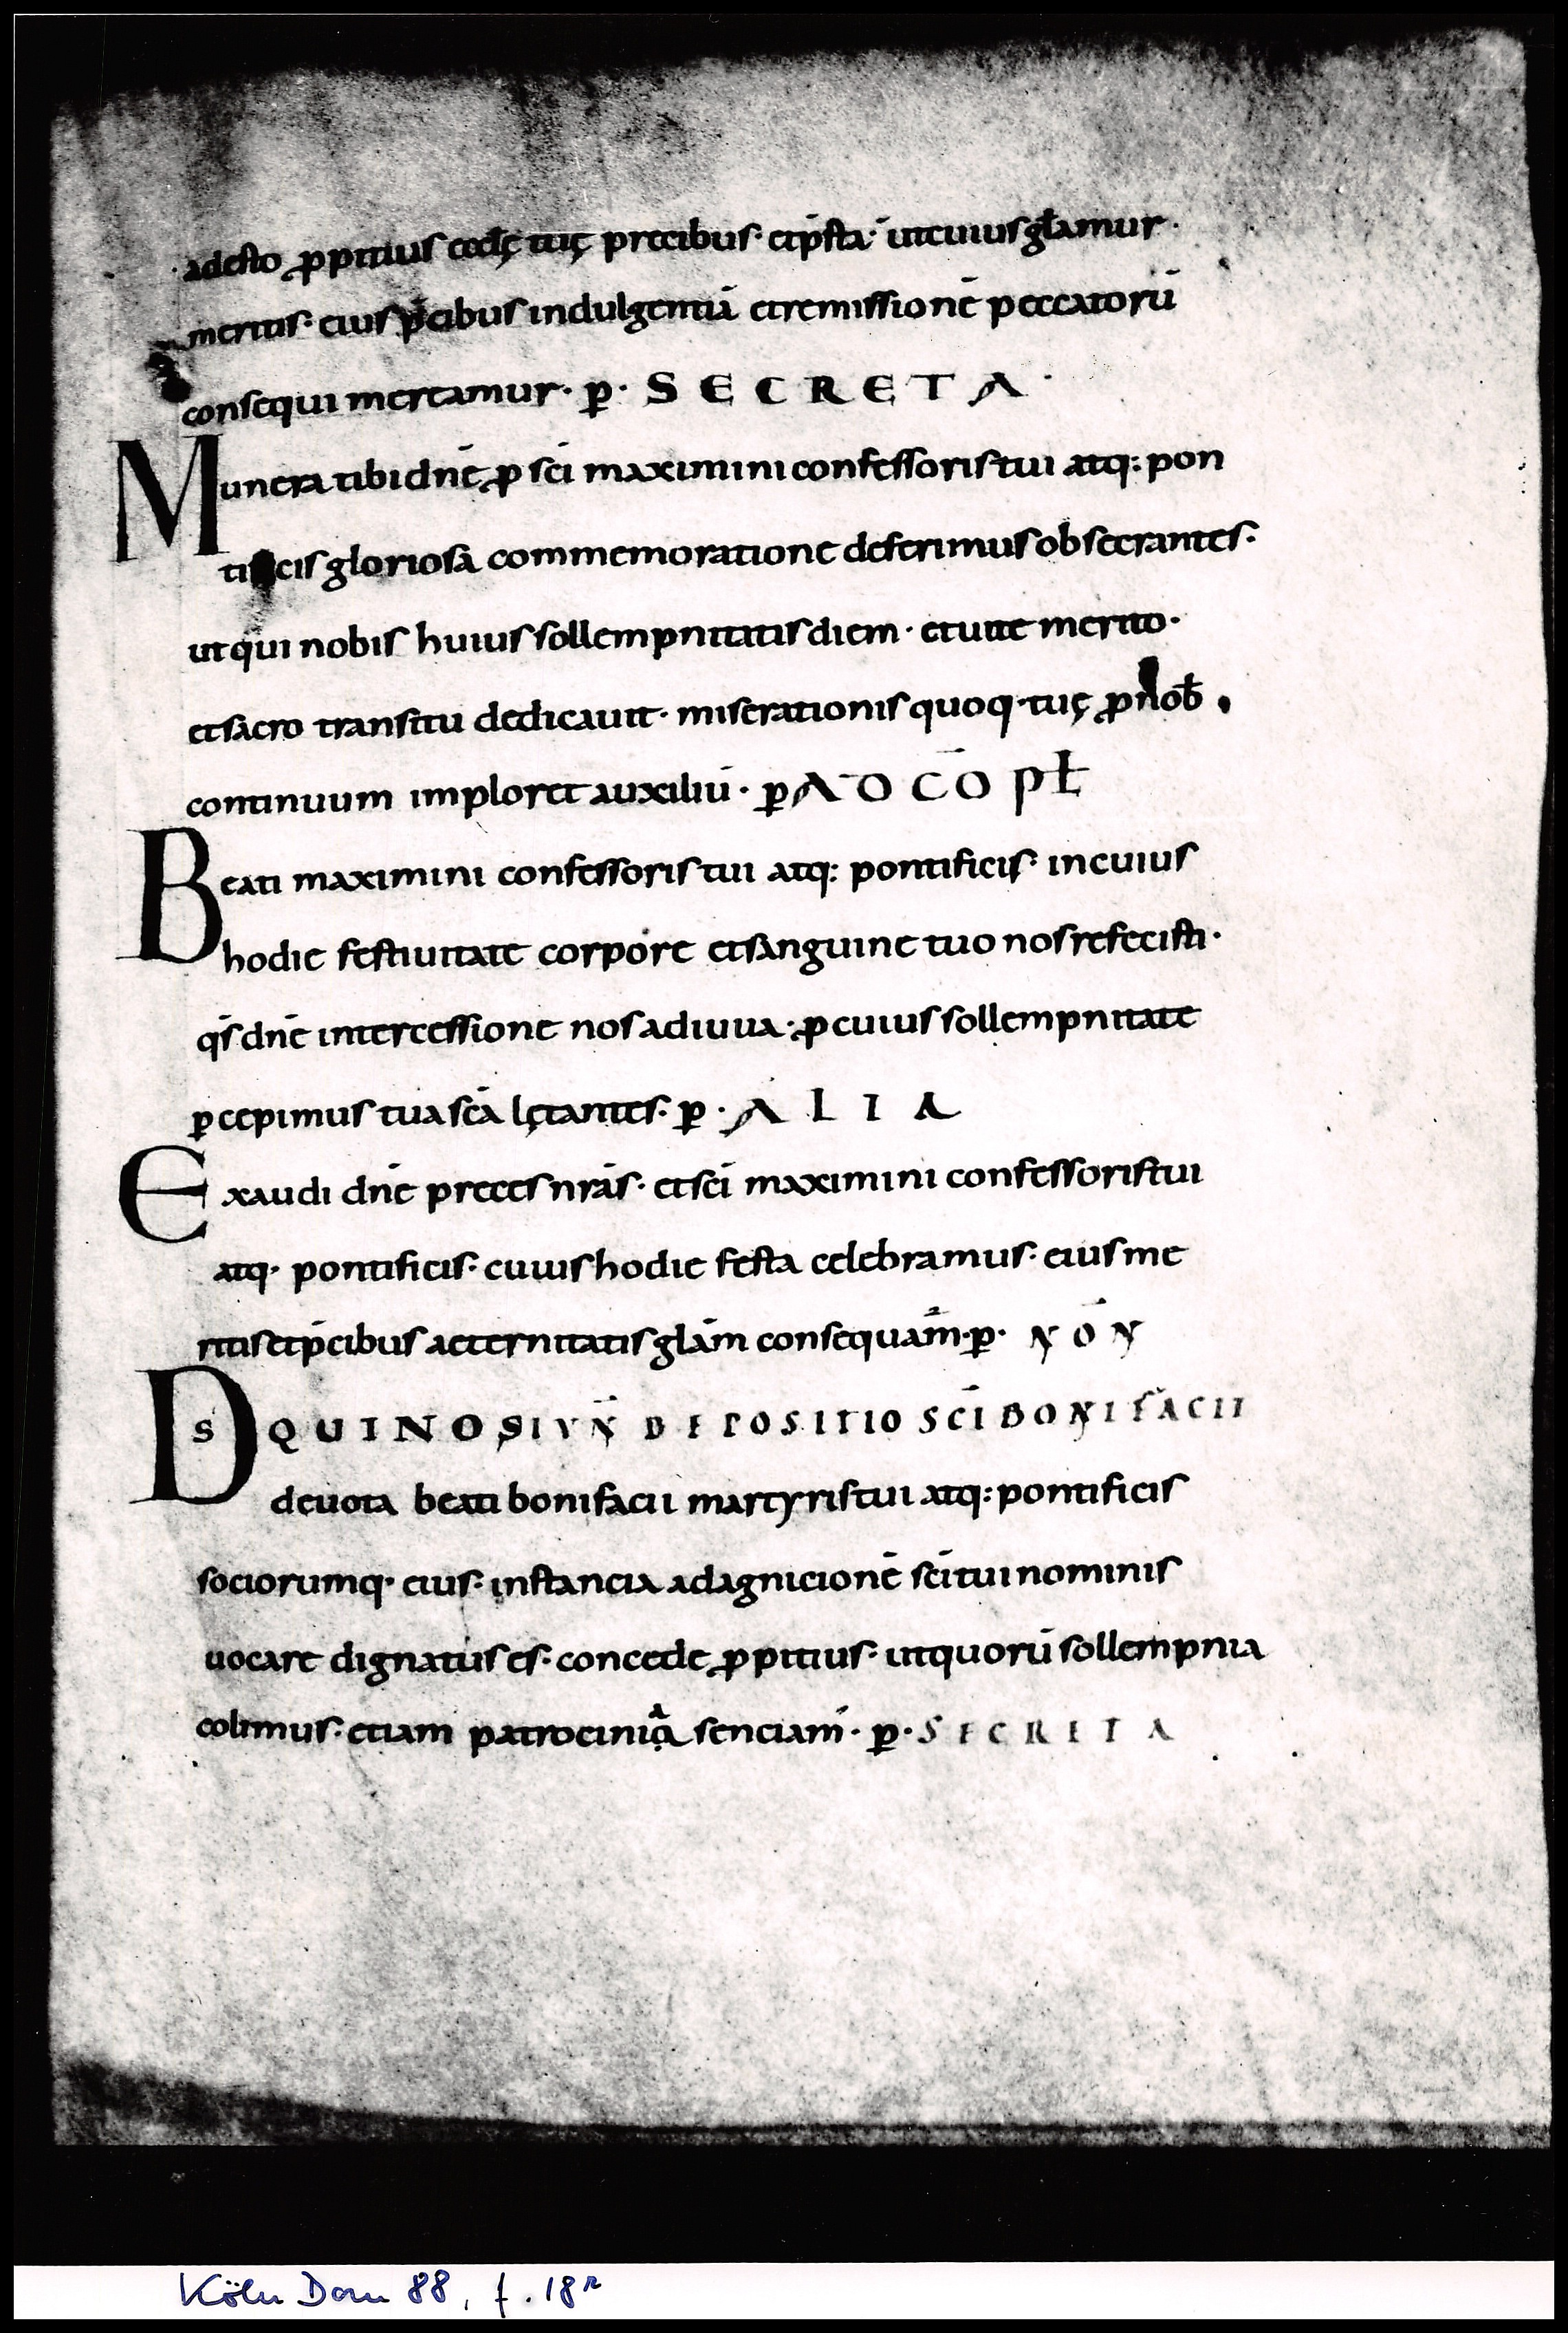 adesto ꝓpitius eccl̄ę tuę precibus· et p̄sta· ut cuius gl̄amur·
meritis· eius p̄cibus indulgentiā et remissionē peccatorū
consequi mereamur· p̱· SECRETA·
Munera tibi dn̄e ꝓ sc̄i maximini confessoris tui atq: pon
tificis gloriosa commemoratione deferimus obsecrantes·
ut qui nobis huius sollempnitatis diem· et uite merito·
et sacro transitu dedicauit· miserationis quoq· tuę ꝓ nob̄·
continuum imploret auxiliū· p̱ Ā̄ O CŌ PŁ
Beati maximini confessoris tui atq: pontificis· in cuius
hodie festiuitate corpore et sanguine tuo nos refecisti·
qs̄ dn̄e intercessione nos adiuua· ꝓ cuius sollempnitate
ꝑcepimus tua sc̄a lętantes· p̱· ALIA
Exaudi dn̄e preces nr̄as· et sc̄i maximini confessoris tui
atq· pontificis· cuius hodie festa celebramus· eius me
ritis et p̄cibus aeternitatis glām consequam̄· p̱· NŌN
DS QUI NOS IVN̄ DEPOSITIO SC̄I BONIFACII
deuota beati bonifacii martyris tui atq: pontificis
sociorumq· eius· instancia ad agnicionē sc̄i tui nominis
uocare dignatus es· concede ꝓpitius· ut quorū sollempnia
colimus· etiam patrocinia senciam̄· p̱· SECRETA
Köln Dom 88, f. 18r